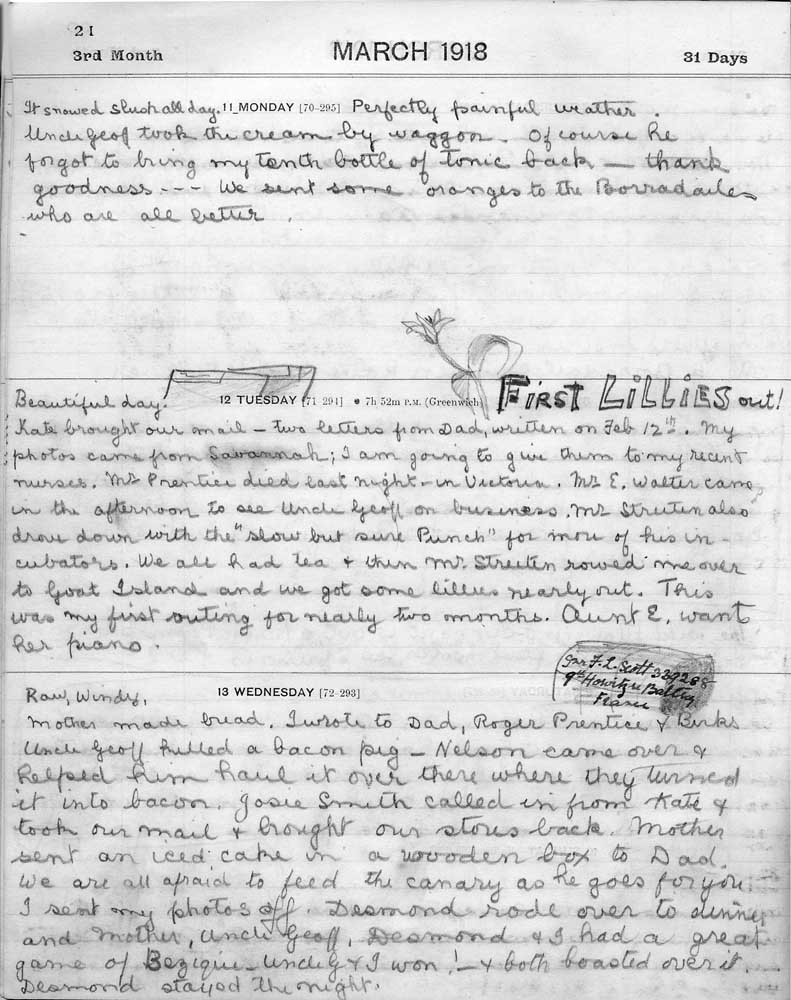 21
3rd Month MARCH 1918 31 Days
It snowed slush all day. 11 MONDAY [70-295] Perfectly painful weather.
Uncle Geoff took the cream by waggon. Of course he
forgot to bring my tenth bottle of tonic back — thank
goodness --- We sent some oranges to the Borradailes
who are all better.
FIRST LILLIES out!
Beautiful day. 12 TUESDAY [71-294] ● 7h 52m P.M. (Greenwich)
Kate brought our mail — two letters from Dad, written on Feb 12th. My
photos came from Savannah; I am going to give them to my recent
nurses. Mr Prentice died last night - in Victoria. Mr E. Walter came,
in the afternoon to see Uncle Geoff on business. Mr Streeten also
drove down with the "slow but sure Punch" for more of his in-
cubators. We all had tea & then Mr. Streeten rowed me over
to Goat Island and we got some lillies nearly out. This
was my first outing for nearly two months. Aunt E. want
her piano.
Gnr F. L. Scott 329288
9th Howitzer Battery
France
Raw, Windy, 13 WEDNESDAY [72-293]
Mother made bread. I wrote to Dad, Roger Prentice & Birks
Uncle Geoff killed a bacon pig — Nelson came over &
helped him haul it over there where they turned
it into bacon. Josie Smith called in from Kate &
took our mail & brought our stores back. Mother
sent an iced cake in a wooden box to Dad.
We are all afraid to feed the canary as he goes for you.
I sent my photos off. Desmond rode over to dinner
and Mother, Uncle Geoff, Desmond & I had a great
game of Bezique — Uncle G & I won! — & both boasted over it.
Desmond stayed the night.